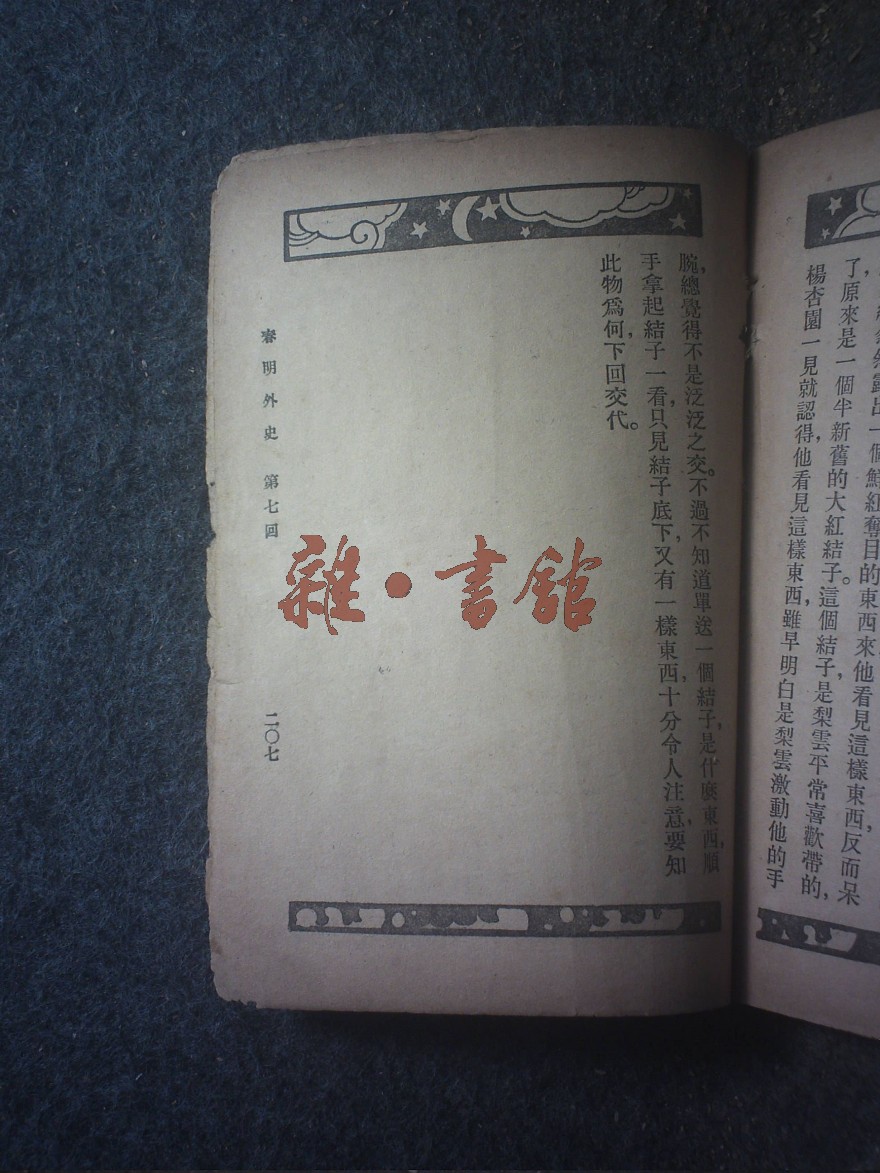 出一個鮮紅奪目的東西來他看見這樣東西，反而呆
了，原來是一個半新舊的大紅結子。這個結子，是梨雲平常喜歡帶的，
楊杏園一見就認得，他看見這樣東西，雖早明白是梨雲激動他的手
腕，總覺得不是泛泛之交。不過不知道單送一個結子，是什麼東西，順
手拿起結子一看，只見結子底下，又有一樣東西，十分令人注意，要知
此物爲何，下回交代。
春明外史 第七回 二〇七
雜•書館